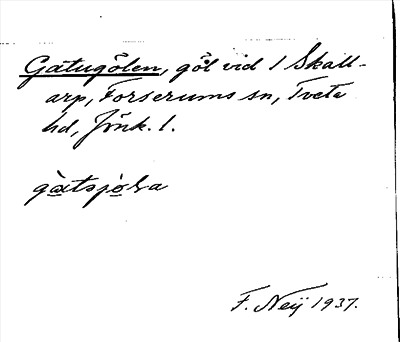 Gatugölen, göl vid 1 Skall-
arp, Forserums sn, Tveta
hd, Jönk. l.
gàtsjö̀la
F. Neij 1937.